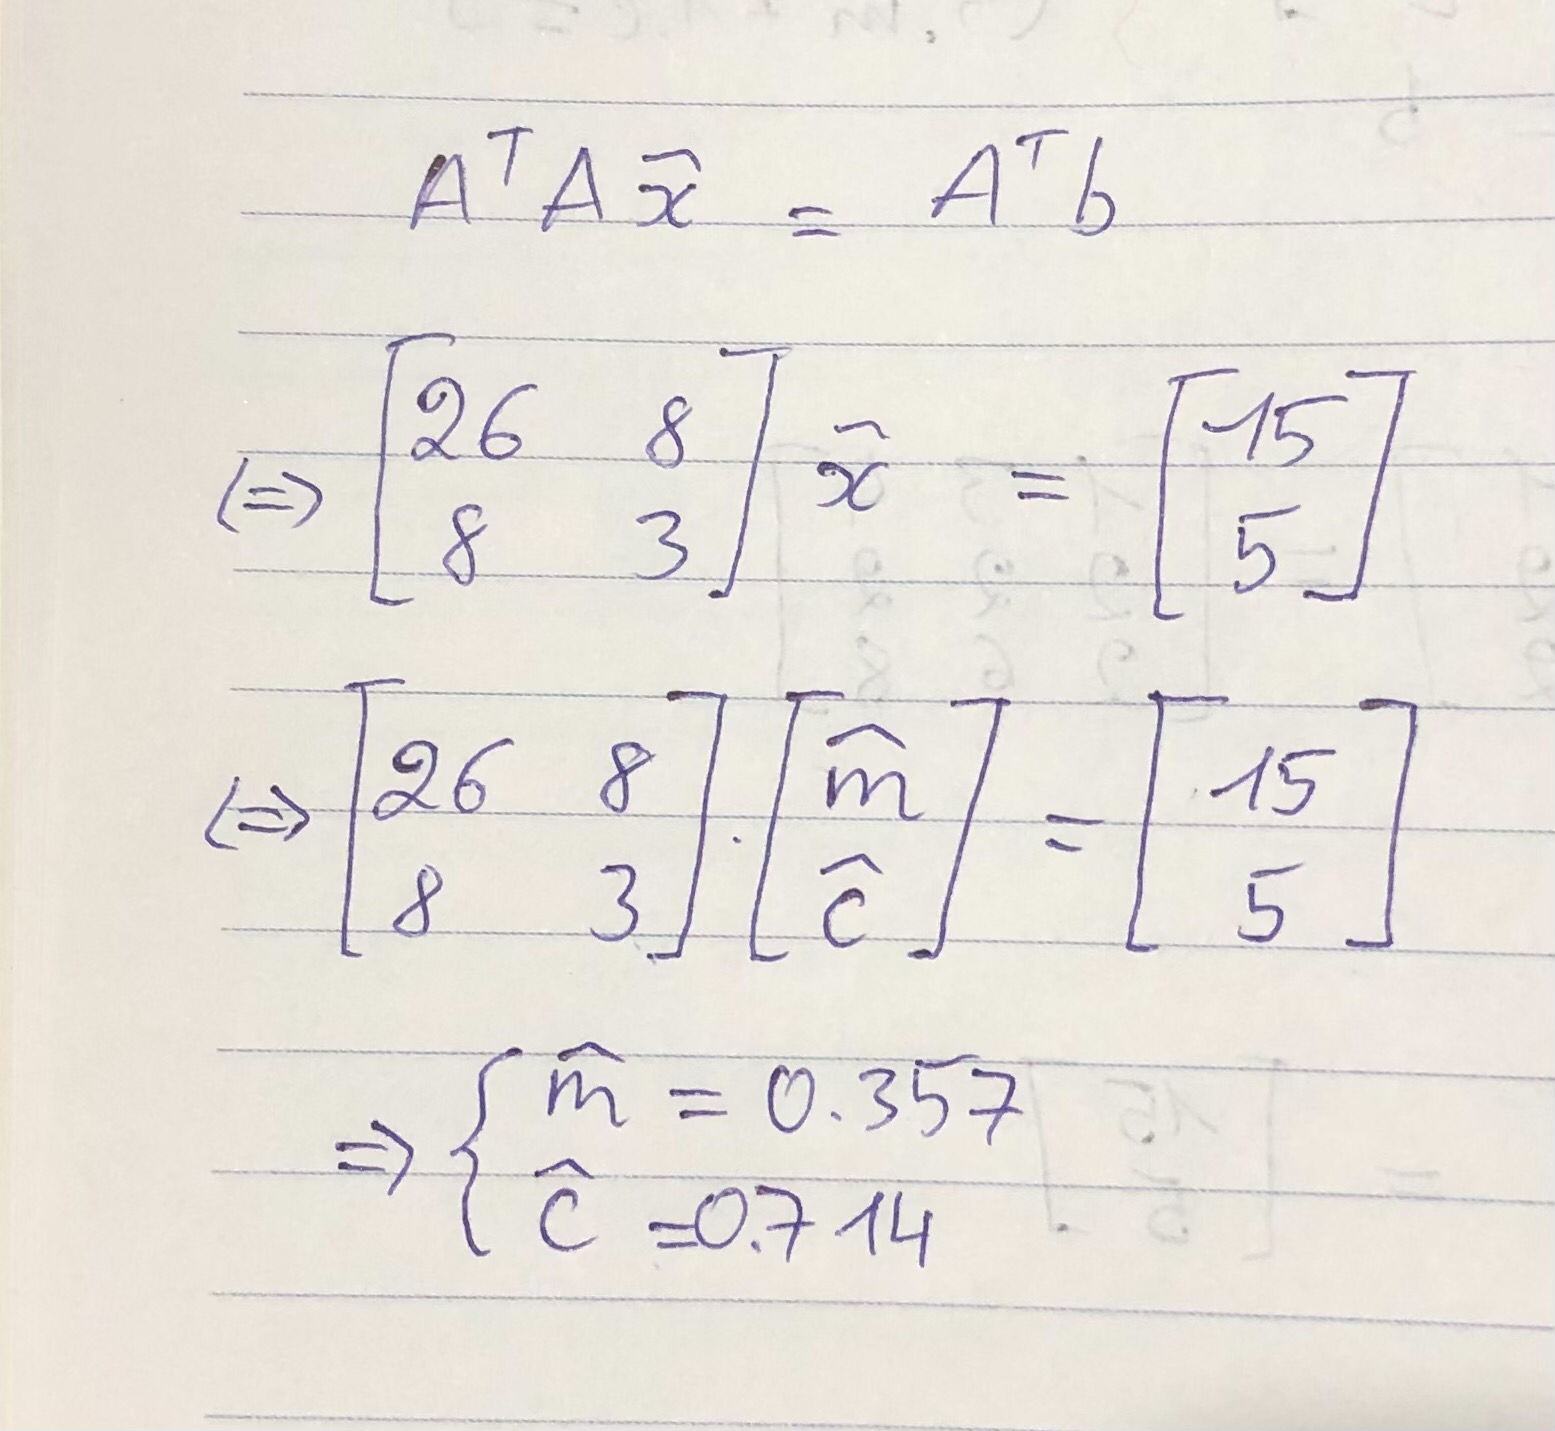 AᵀA x̂ = Aᵀb
⇔ [26 8; 8 3] x̂ = [15; 5]
⇔ [26 8; 8 3] · [m̂; ĉ] = [15; 5]
⇒ { m̂ = 0.357
ĉ = 0.714